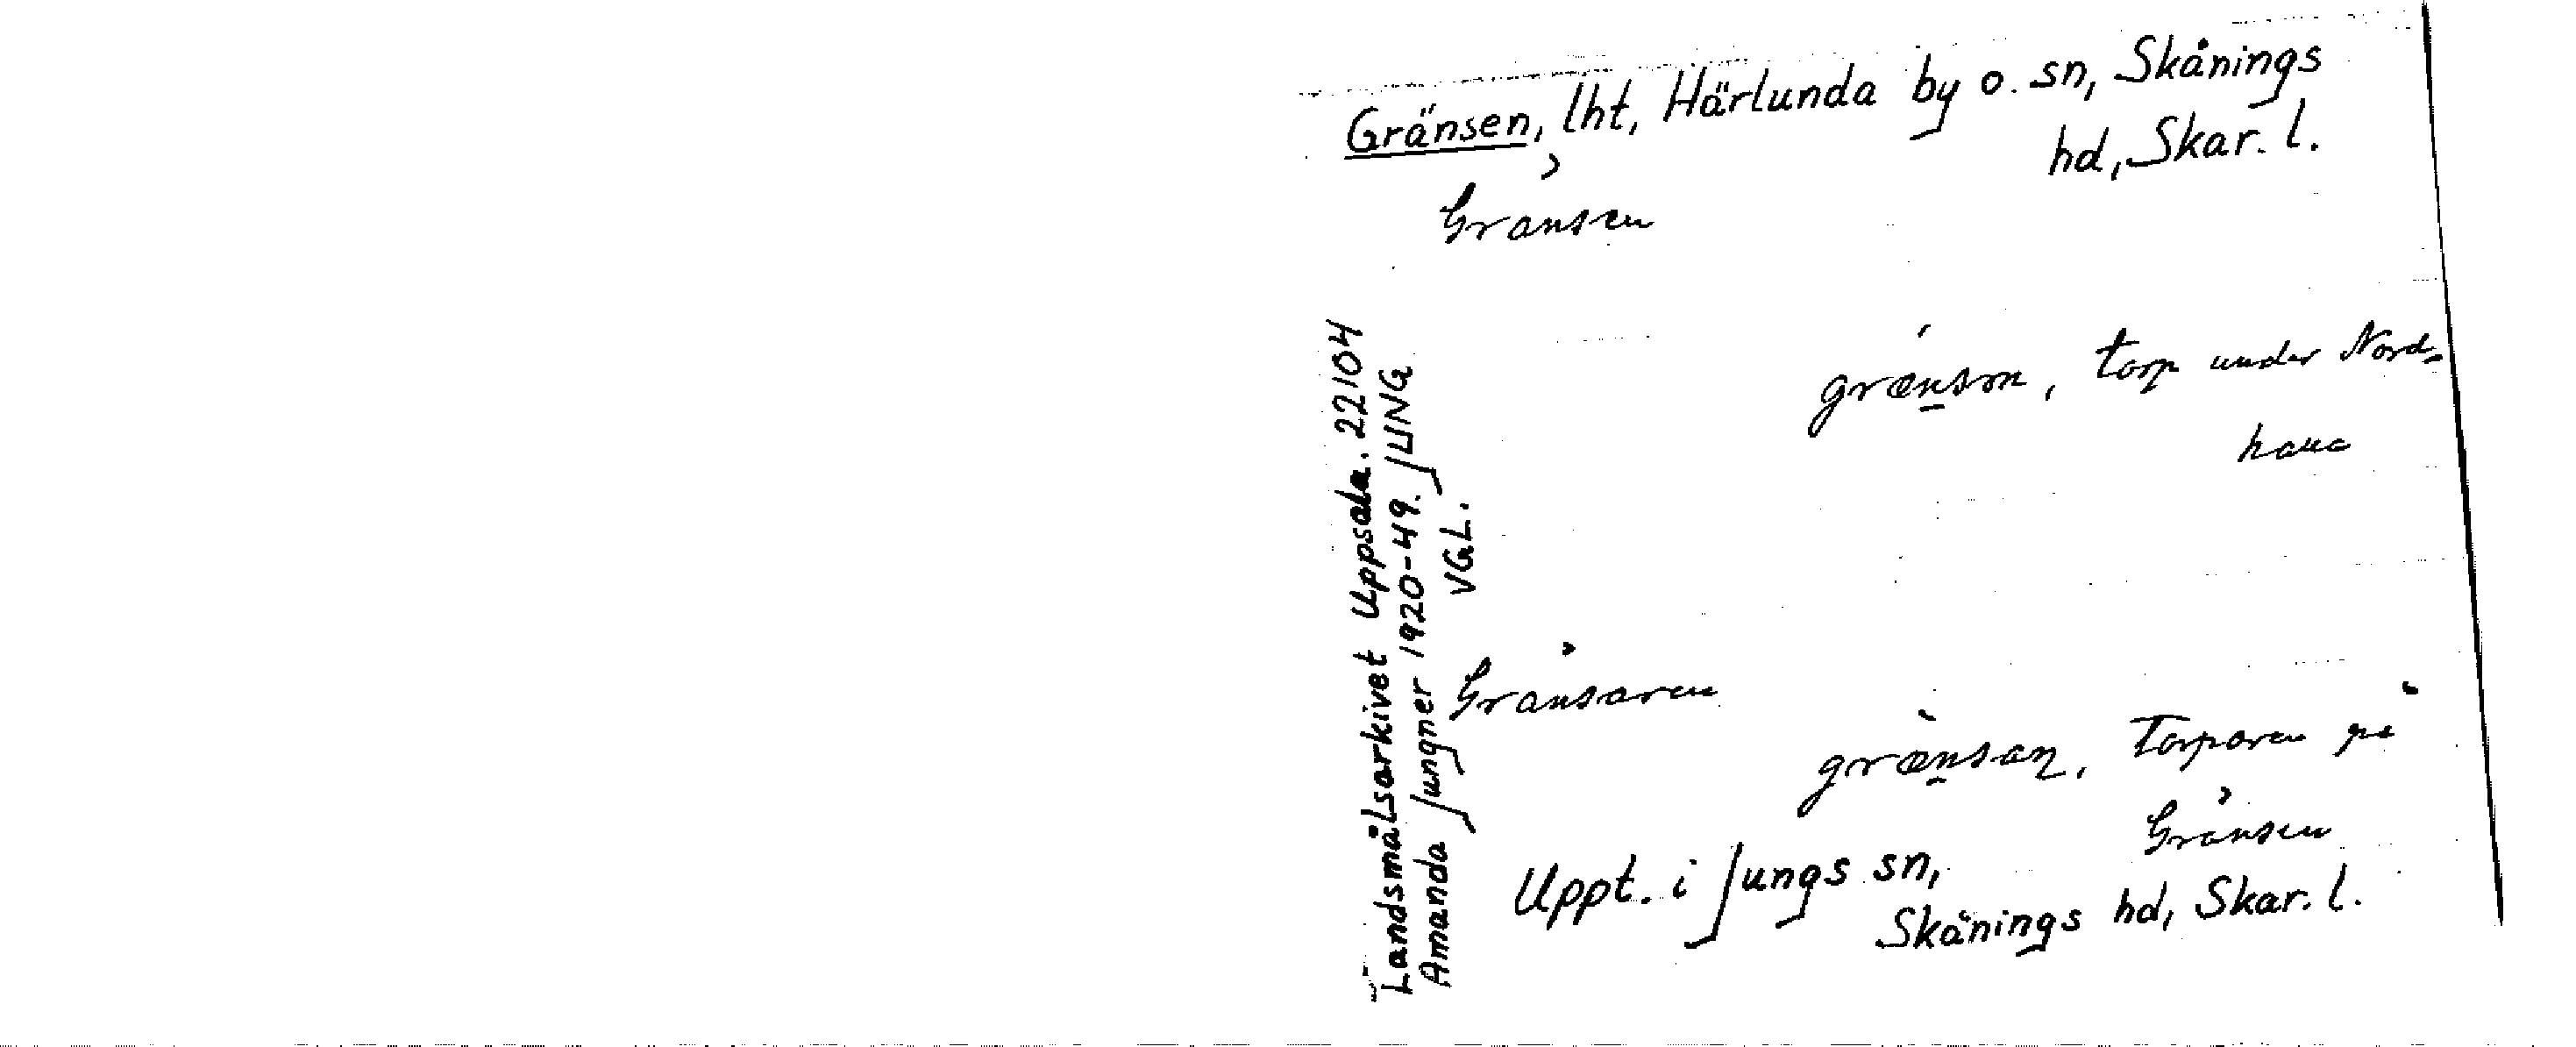 Gränsen, lht, Härlunda by o. sn, Skånings
hd, Skar. l.
Gränsen
grænsən, torp under Nord-
hana
Gränsaren
grænsaṇ, Torparen på
Gränsen
Uppt. i Jungs sn,
Skånings hd, Skar. l.
Landsmålsarkivet Uppsala. 22104
Amanda Jungner 1920-49. JUNG
VGL.